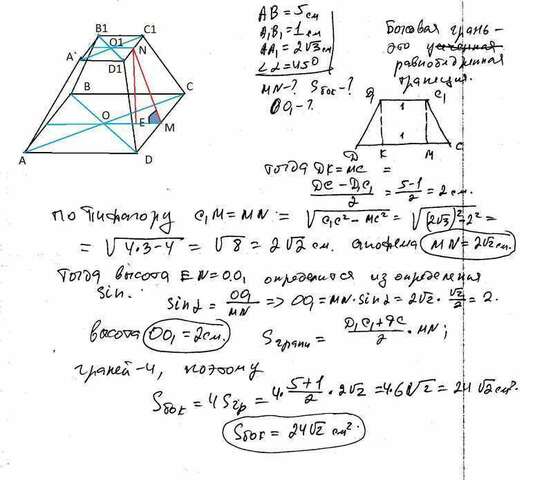 B1 C1
O1 N
A1
D1
B C
O E M
A D
AB = 5 см
A₁B₁ = 1 см
AA₁ = 2√3 см
∠α = 45°
MN - ? Sбок - ?
OO₁ - ?
Боковая грань -
это усеченная
равнобедренная
трапеция.
D₁ 1 C₁
1
D K M C
Тогда DK = MC =
(DC - D₁C₁)/2 = (5-1)/2 = 2 см.
по Пифагору C₁M = MN = √(C₁C² - MC²) = √((2√3)² - 2²) =
= √(4·3-4) = √8 = 2√2 см. апофема MN = 2√2 см.
Тогда высота EN = OO₁ определится из определения
sin.
sin α = OO₁/MN => OO₁ = MN · sin α = 2√2 · √2/2 = 2.
высота OO₁ = 2 см. Sграни = (D₁C₁ + DC)/2 · MN;
граней - 4, поэтому
Sбок = 4Sгр = 4 · (5+1)/2 · 2√2 = 4·6√2 = 24√2 см².
Sбок = 24√2 см².